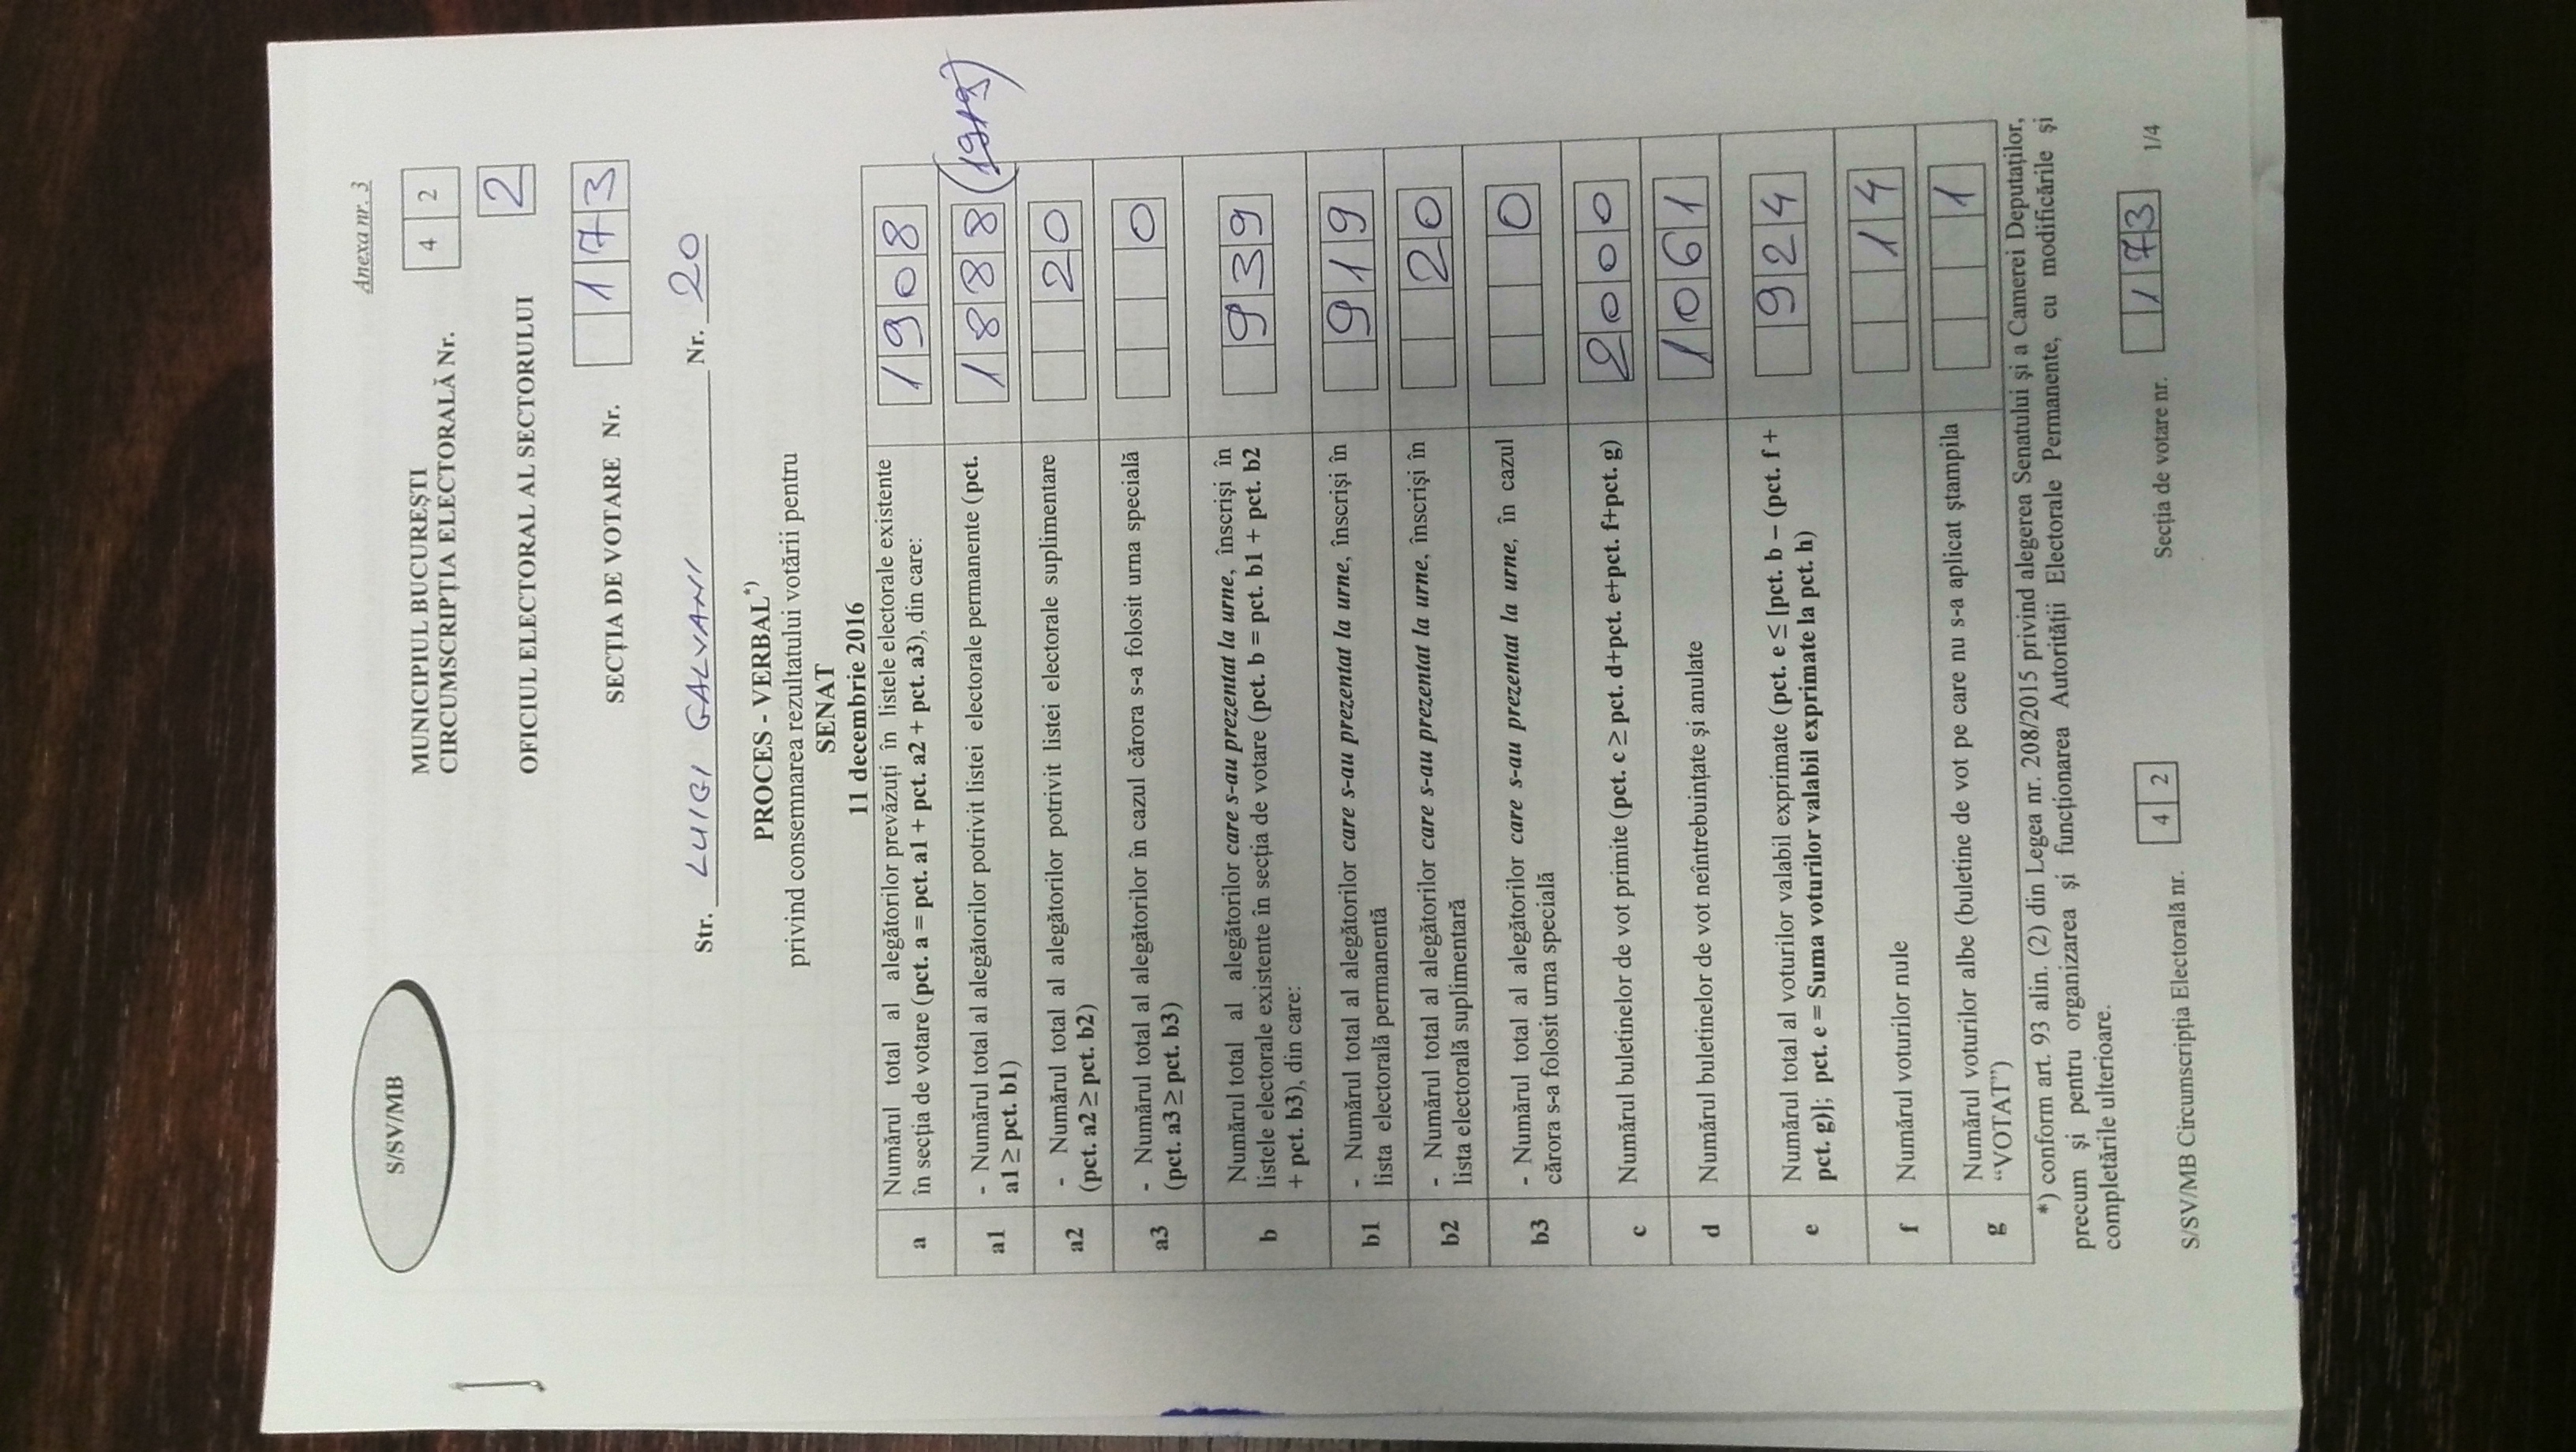 Anexa nr. 3
S/SV/MB
MUNICIPIUL BUCUREŞTI
CIRCUMSCRIPŢIA ELECTORALĂ Nr. 4 2
OFICIUL ELECTORAL AL SECTORULUI 2
SECŢIA DE VOTARE Nr. 1 7 3
Str. LUIGI GALVANI Nr. 20
PROCES - VERBAL*)
privind consemnarea rezultatului votării pentru
SENAT
11 decembrie 2016
a Numărul total al alegătorilor prevăzuţi în listele electorale existente 1 9 0 8
în secţia de votare (pct. a = pct. a1 + pct. a2 + pct. a3), din care:
a1 - Numărul total al alegătorilor potrivit listei electorale permanente (pct. 1 8 8 8
a1 ≥ pct. b1)
a2 - Numărul total al alegătorilor potrivit listei electorale suplimentare 2 0
(pct. a2 ≥ pct. b2)
a3 - Numărul total al alegătorilor în cazul cărora s-a folosit urna specială 0
(pct. a3 ≥ pct. b3)
b Numărul total al alegătorilor care s-au prezentat la urne, înscrişi în 9 3 9
listele electorale existente în secţia de votare (pct. b = pct. b1 + pct. b2
+ pct. b3), din care:
b1 - Numărul total al alegătorilor care s-au prezentat la urne, înscrişi în 9 1 9
lista electorală permanentă
b2 - Numărul total al alegătorilor care s-au prezentat la urne, înscrişi în 2 0
lista electorală suplimentară
b3 - Numărul total al alegătorilor care s-au prezentat la urne, în cazul 0
cărora s-a folosit urna specială
c Numărul buletinelor de vot primite (pct. c ≥ pct. d+pct. e+pct. f+pct. g) 2 0 0 0
d Numărul buletinelor de vot neîntrebuinţate şi anulate 1 0 6 1
e Numărul total al voturilor valabil exprimate (pct. e ≤ [pct. b – (pct. f + 9 2 4
pct. g)]; pct. e = Suma voturilor valabil exprimate la pct. h)
f Numărul voturilor nule 1 4
g Numărul voturilor albe (buletine de vot pe care nu s-a aplicat ştampila 1
“VOTAT”)
*) conform art. 93 alin. (2) din Legea nr. 208/2015 privind alegerea Senatului şi a Camerei Deputaţilor,
precum şi pentru organizarea şi funcţionarea Autorităţii Electorale Permanente, cu modificările şi
completările ulterioare.
S/SV/MB Circumscripţia Electorală nr. 4 2 Secţia de votare nr. 1 7 3 1/4